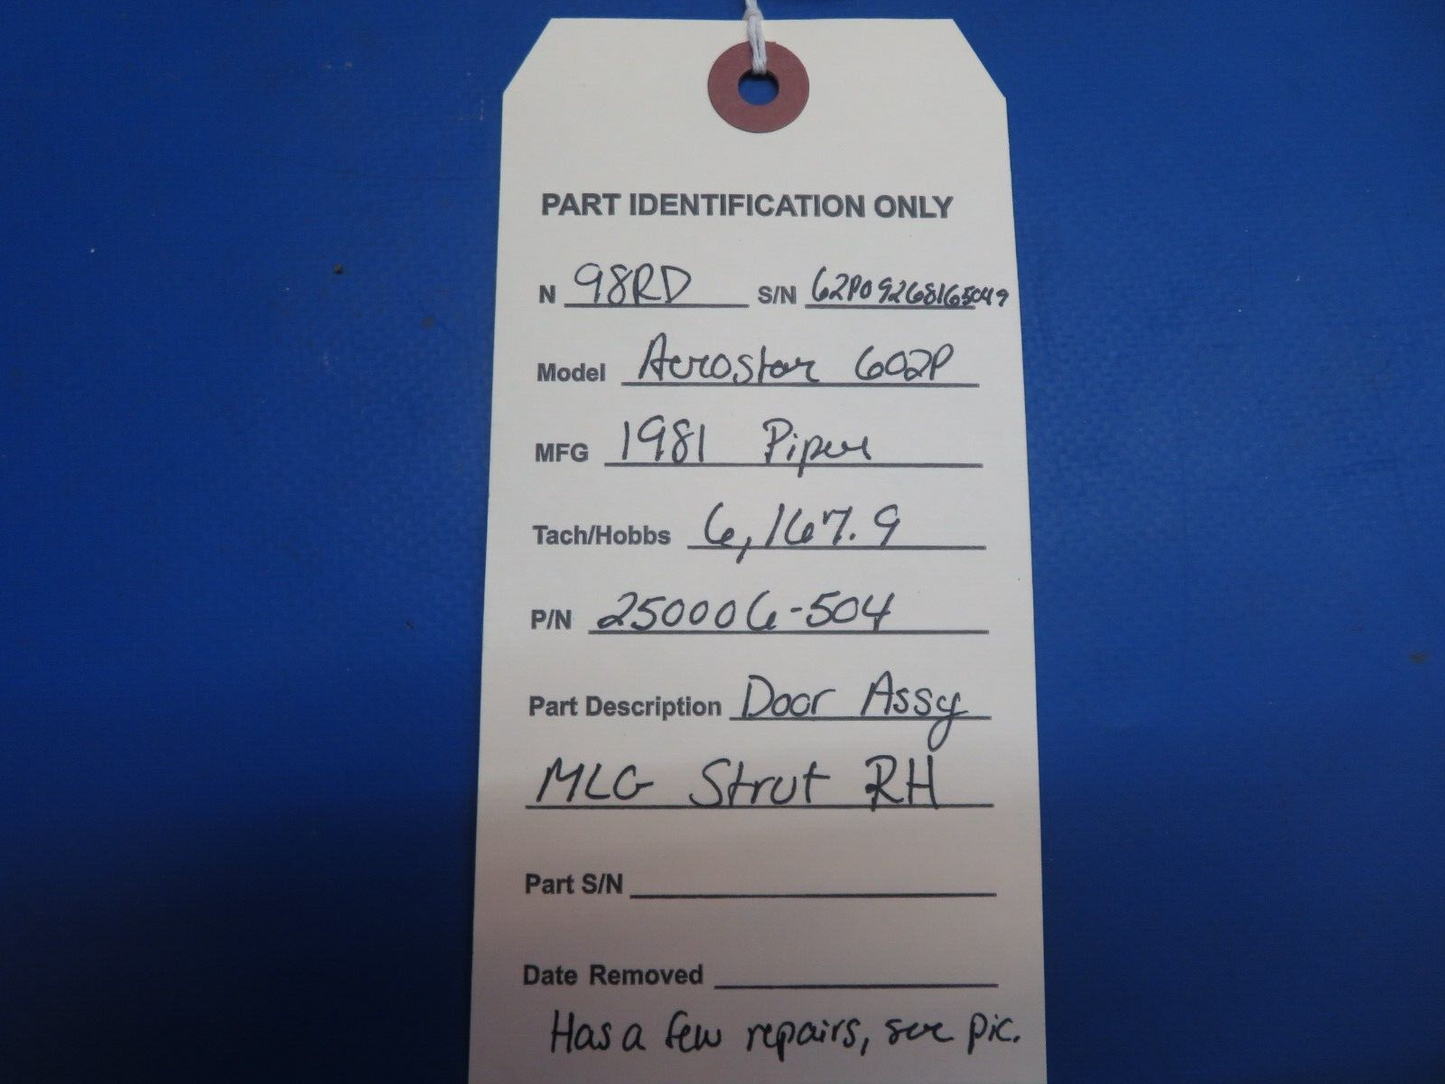 PART IDENTIFICATION ONLY
N 98RD S/N 62P09268165049
Model Aerostar 602P
MFG 1981 Piper
Tach/Hobbs 6,167.9
P/N 250006-504
Part Description Door Assy
MLG Strut RH
Part S/N
Date Removed
Has a few repairs, see pic.